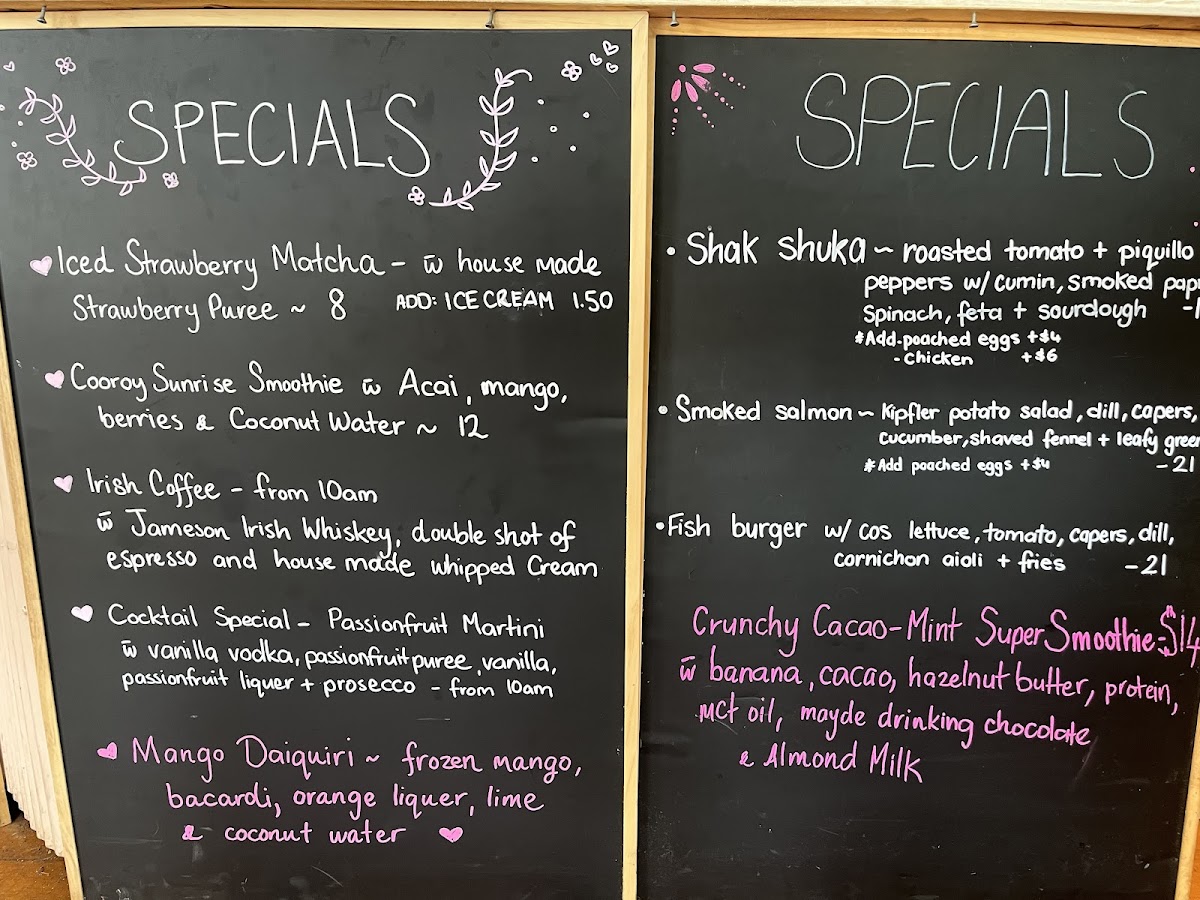 SPECIALS
Iced Strawberry Matcha - w̄ house made
Strawberry Puree ~ 8 ADD: ICE CREAM 1.50
Cooroy Sunrise Smoothie w̄ Acai, mango,
berries & Coconut Water ~ 12
Irish Coffee - from 10am
w̄ Jameson Irish Whiskey, double shot of
espresso and house made whipped Cream
Cocktail Special - Passionfruit Martini
w̄ vanilla vodka, passionfruit puree, vanilla,
passionfruit liquer + prosecco - from 10am
Mango Daiquiri ~ frozen mango,
bacardi, orange liquer, lime
& coconut water
SPECIALS
• Shak shuka ~ roasted tomato + piquillo
peppers w/ cumin, smoked
Spinach, feta + sourdough
*Add-poached eggs +$4
- Chicken +$6
• Smoked salmon ~ Kipfler potato salad, dill, capers,
cucumber, shaved fennel + leafy
*Add poached eggs +$4 - 21
• Fish burger w/ cos lettuce, tomato, capers, dill,
cornichon aioli + fries - 21
Crunchy Cacao-Mint Super Smoothie - $14
w̄ banana, cacao, hazelnut butter, protein,
mct oil, mayde drinking chocolate
& Almond Milk